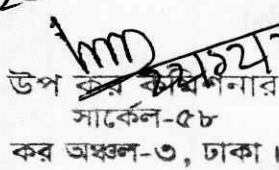 উপ কর কমিশনার
সার্কেল-৫৮
কর অঞ্চল-৩, ঢাকা।